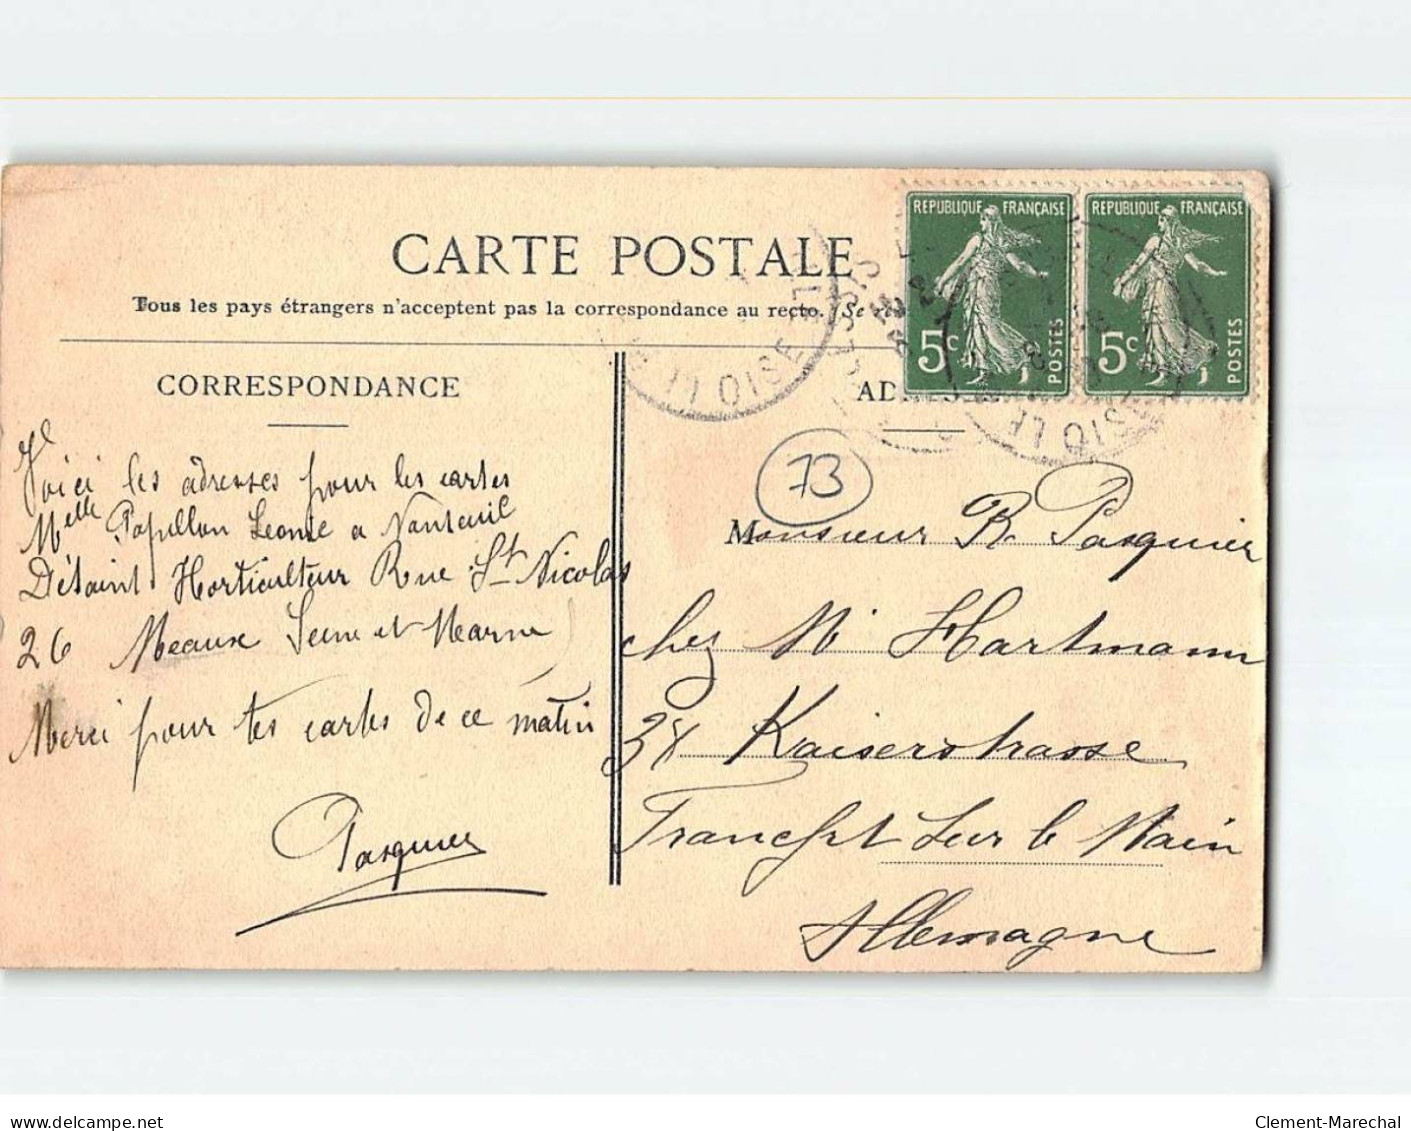 CARTE POSTALE
Tous les pays étrangers n'acceptent pas la correspondance au recto. (Se
REPUBLIQUE FRANÇAISE
5c
POSTES
REPUBLIQUE FRANÇAISE
5c
POSTES
CORRESPONDANCE
Voici les adresses pour les cartes
Melle Papillon Leonie a Nanteuil
Détaint Horticulteur Rue St Nicolas
26 Meaux Seine et Marne
Merci pour tes cartes de ce matin
Pasquier
73
Monsieur R. Pasquier
chez Mr Hartmann
Kaiserstrasse
Francfrt sur le Main
Allemagne
delcampe.net
Clement-Marechal